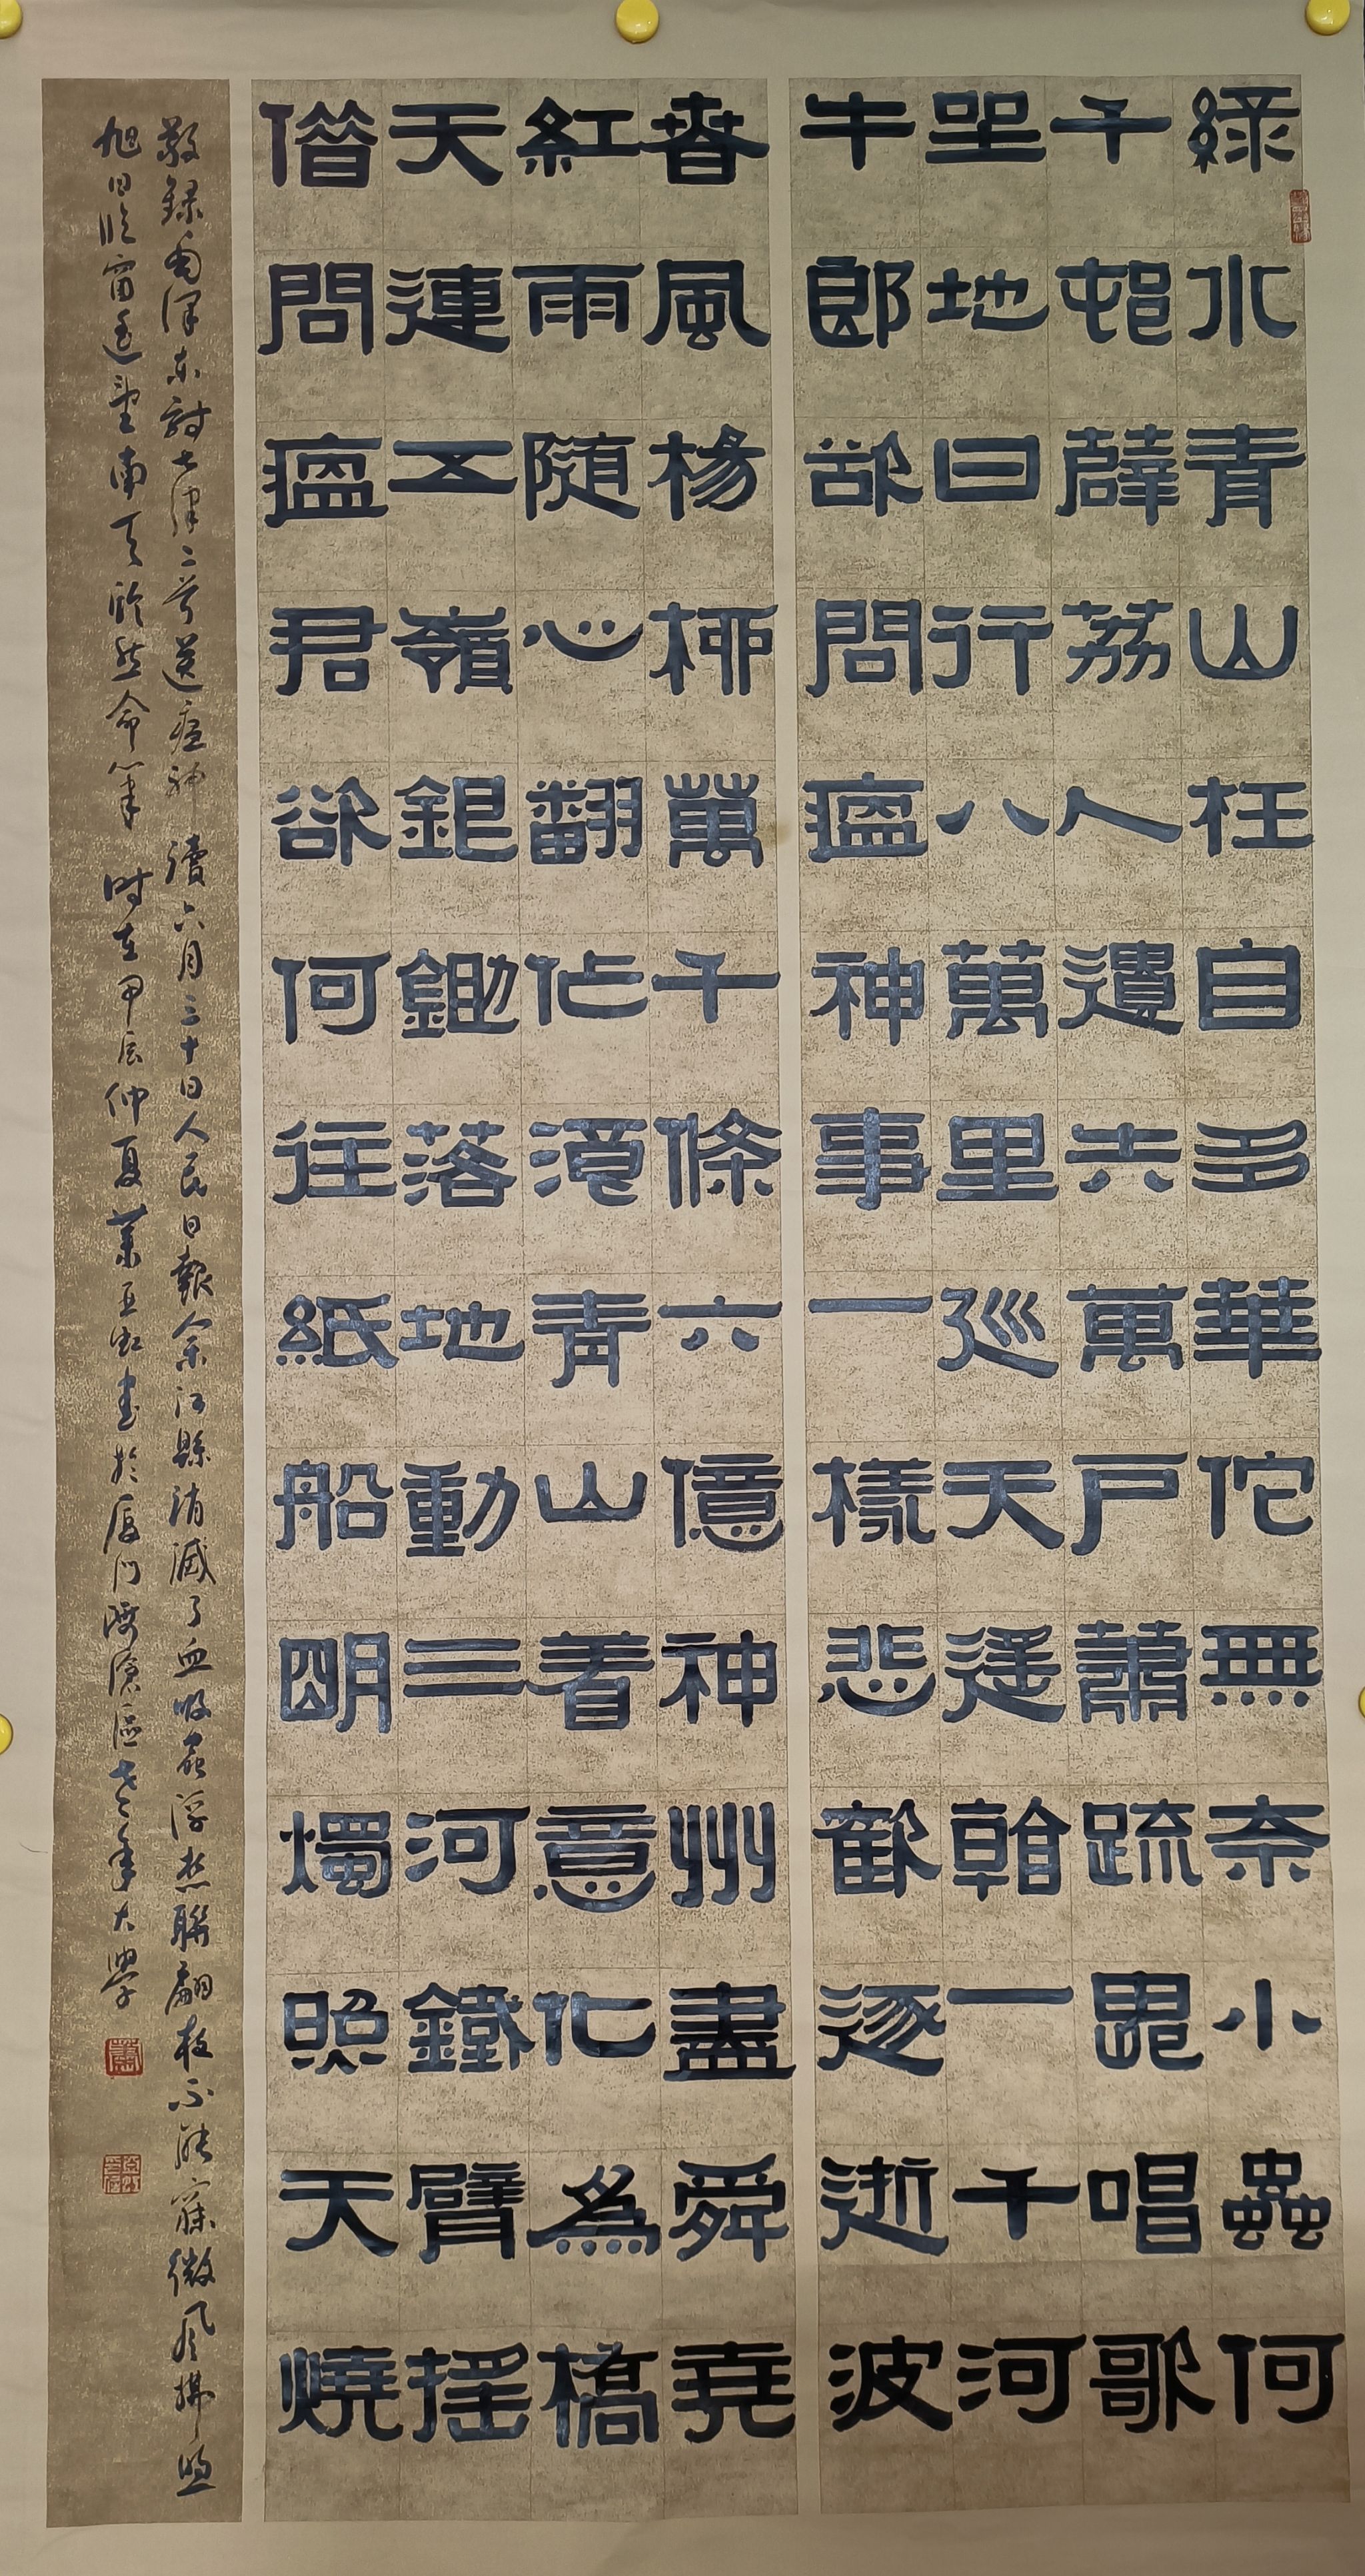 綠水青山枉自多華佗無奈小蟲何
千邨薜荔人遺矢萬戶蕭疏鬼唱歌
坐地日行八萬里巡天遙看一千河
牛郎欲問瘟神事一樣悲歡逐逝波
春風楊柳萬千條六億神州盡舜堯
紅雨隨心翻作浪青山着意化為橋
天連五嶺銀鋤落地動三河鐵臂搖
借問瘟君欲何往紙船明燭照天燒
敬錄毛澤東詩七律二首送瘟神 讀六月三十日人民日報余江縣消滅了血吸蟲浮想聯翩夜不能寐微風拂煦
旭日臨窗遙望南天欣然命筆 時在甲辰仲夏蕭亞虹書於廈門海滄區老年大學